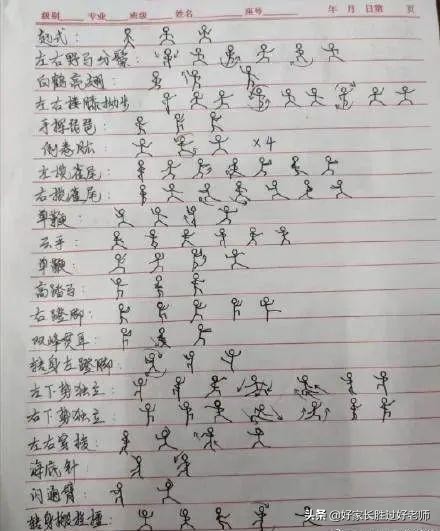 级别 专业 班级 姓名 座号 年 月 日第 页
起式:
左右野马分鬃:
白鹤亮翅:
左右搂膝拗步
手挥琵琶:
倒卷肱 ×4
左揽雀尾:
右揽雀尾
单鞭
云手:
单鞭:
高踏马:
右蹬脚:
双峰贯耳:
转身左蹬脚:
左下势独立:
右下势独立:
左右穿梭:
海底针
闪通臂
转身搬拦捶:
头条 @好家长胜过好老师